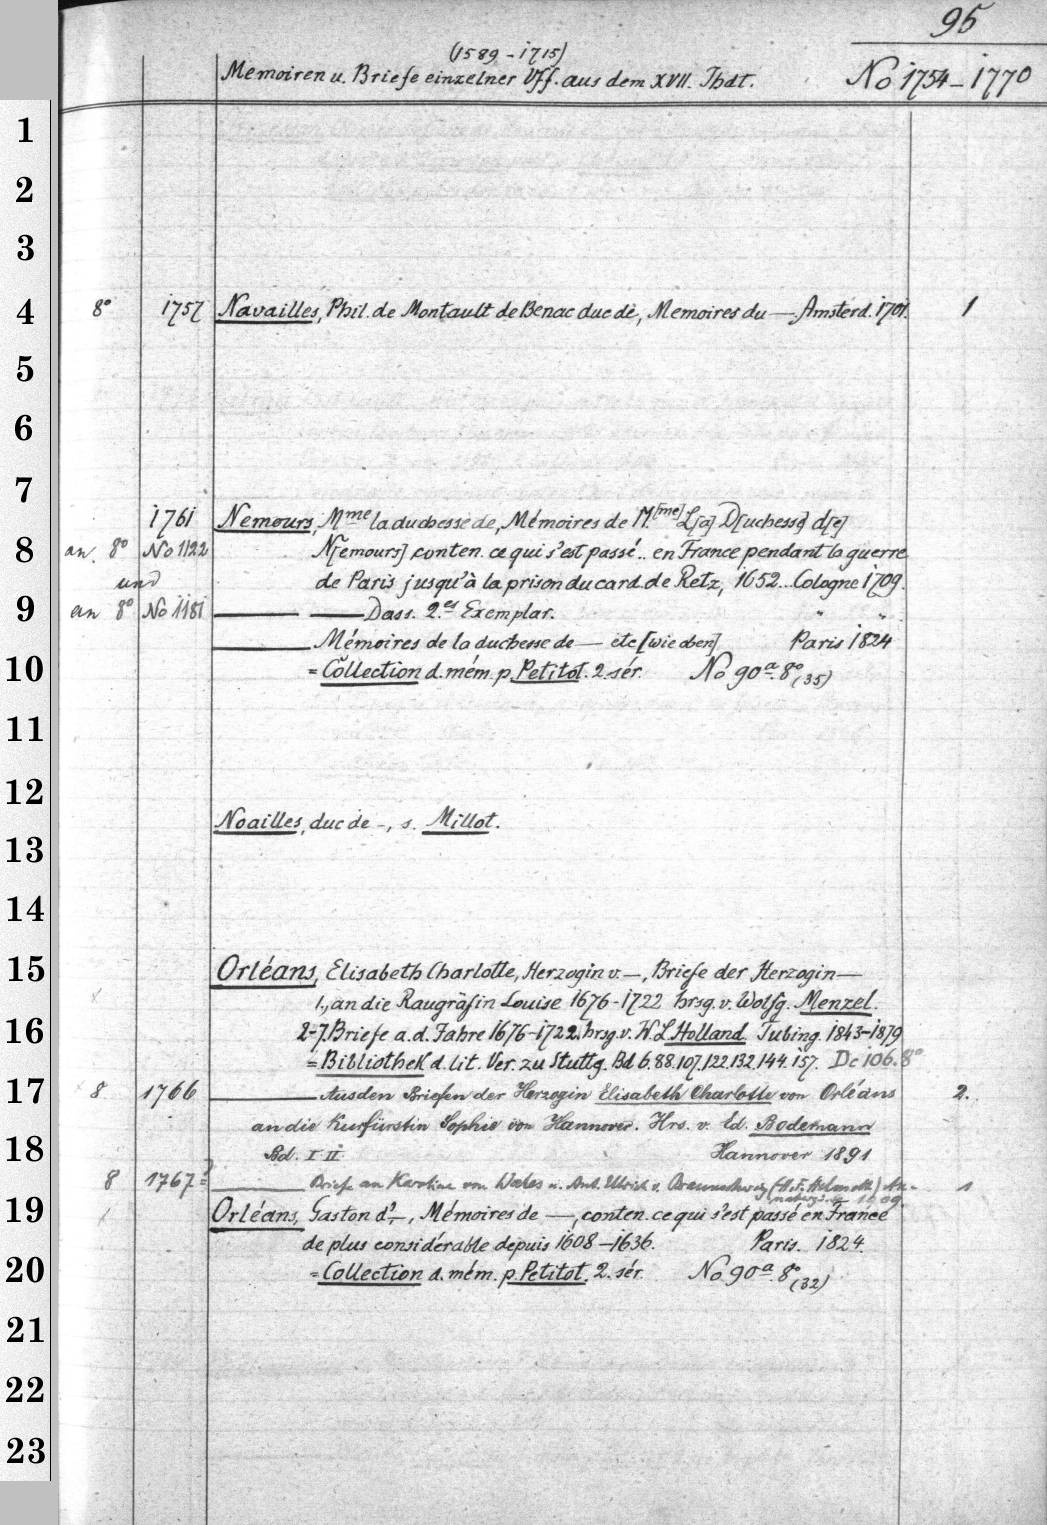 95
(1589-1715)
Memoiren u. Briefe einzelner Vff. aus dem XVII. Jhdt. No 1754-1770
1
2
3
4 8° 1757 Navailles, Phil. de Montault de Bénac duc de, Memoires du — Amsterd. 1701. 1
5
6
7
1761 Nemours, Mme la duchesse de, Mémoires de M.[me] L[a] D[uchesse] d[e]
8 an. 8° No 1122 N[emours] conten. ce qui s'est passé.. en France pendant la guerre
und de Paris jusqu'à la prison du card. de Retz, 1652... Cologne 1709.
9 an 8° No 1181 — — Dass. 2.es Exemplar. " "
— Mémoires de la duchesse de — etc [wie oben] Paris 1824
10 = Collection d. mém. p. Petitot. 2. sér. No 90a. 8° (35)
11
12
Noailles, duc de -, s. Millot.
13
14
15 Orléans, Elisabeth Charlotte, Herzogin v. —, Briefe der Herzogin —
1., an die Raugräfin Louise 1676-1722 hrsg. v. Wolfg. Menzel.
16 2-7. Briefe a. d. Jahre 1676-1722. hrsg. v. W. L. Holland. Tubing. 1843-1879
= Bibliothek d. lit. Ver. zu Stuttg. Bd 6. 88. 107. 122. 132. 144. 157. Dc 106. 8°
17 8 1766 — Aus den Briefen der Herzogin Elisabeth Charlotte von Orléans 2.
an die Kurfürstin Sophie von Hannover. Hrs. v. Ed. Bodemann
18 Bd. I II. Hannover 1891
8 1767 — Briefe an Karoline von Wales u. Ant. Ulrich v. Braunschweig 1
19 Orléans, Gaston d'—, Mémoires de —, conten. ce qui s'est passé en France
de plus considérable depuis 1608-1636. Paris. 1824.
20 = Collection d. mém. p. Petitot. 2. sér. No 90a. 8° (32)
21
22
23